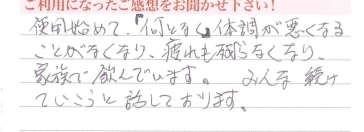 ご利用になったご感想をお聞かせ下さい!
使用始めて、『何となく』体調が悪くなる
ことがなくなり、疲れも残らなくなり、
家族で飲んでいます。 みんな 続け
ていこうと話しております。